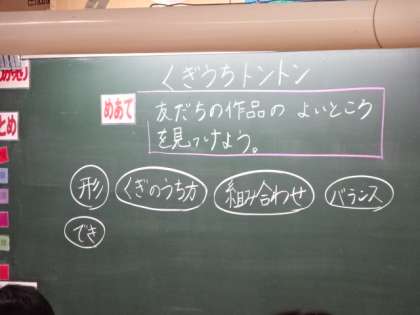 くぎうちトントン
めあて
友だちの作品の よいところ
を見つけよう。
形 くぎのうち方 組み合わせ バランス
でき
とめ